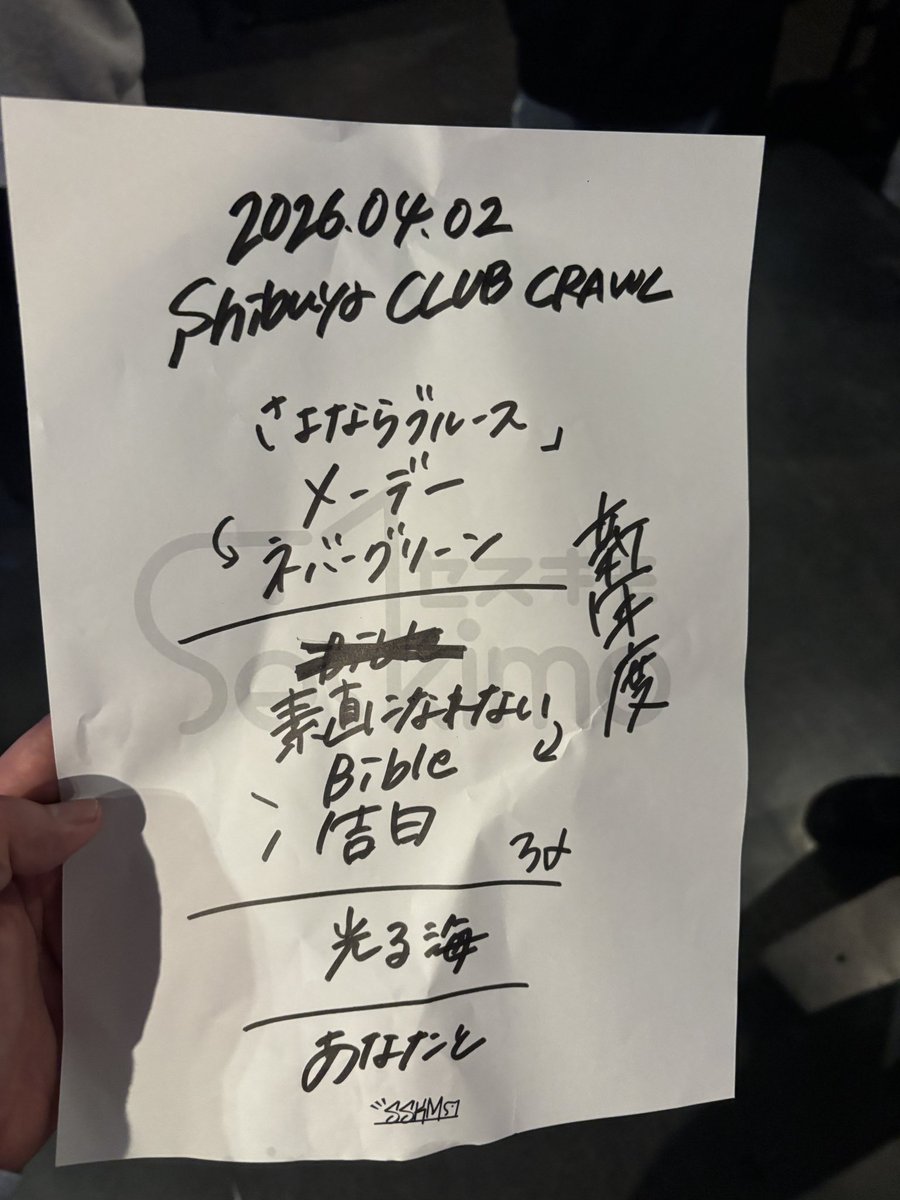 2026.04.02
Shibuya CLUB CRAWL
さよならブルース」
メーデー
ネバーグリーン
新年度
セスキモ
Seskimo
Bible
素直になれない
Bible
告白
光る海
あなたと
SSKM